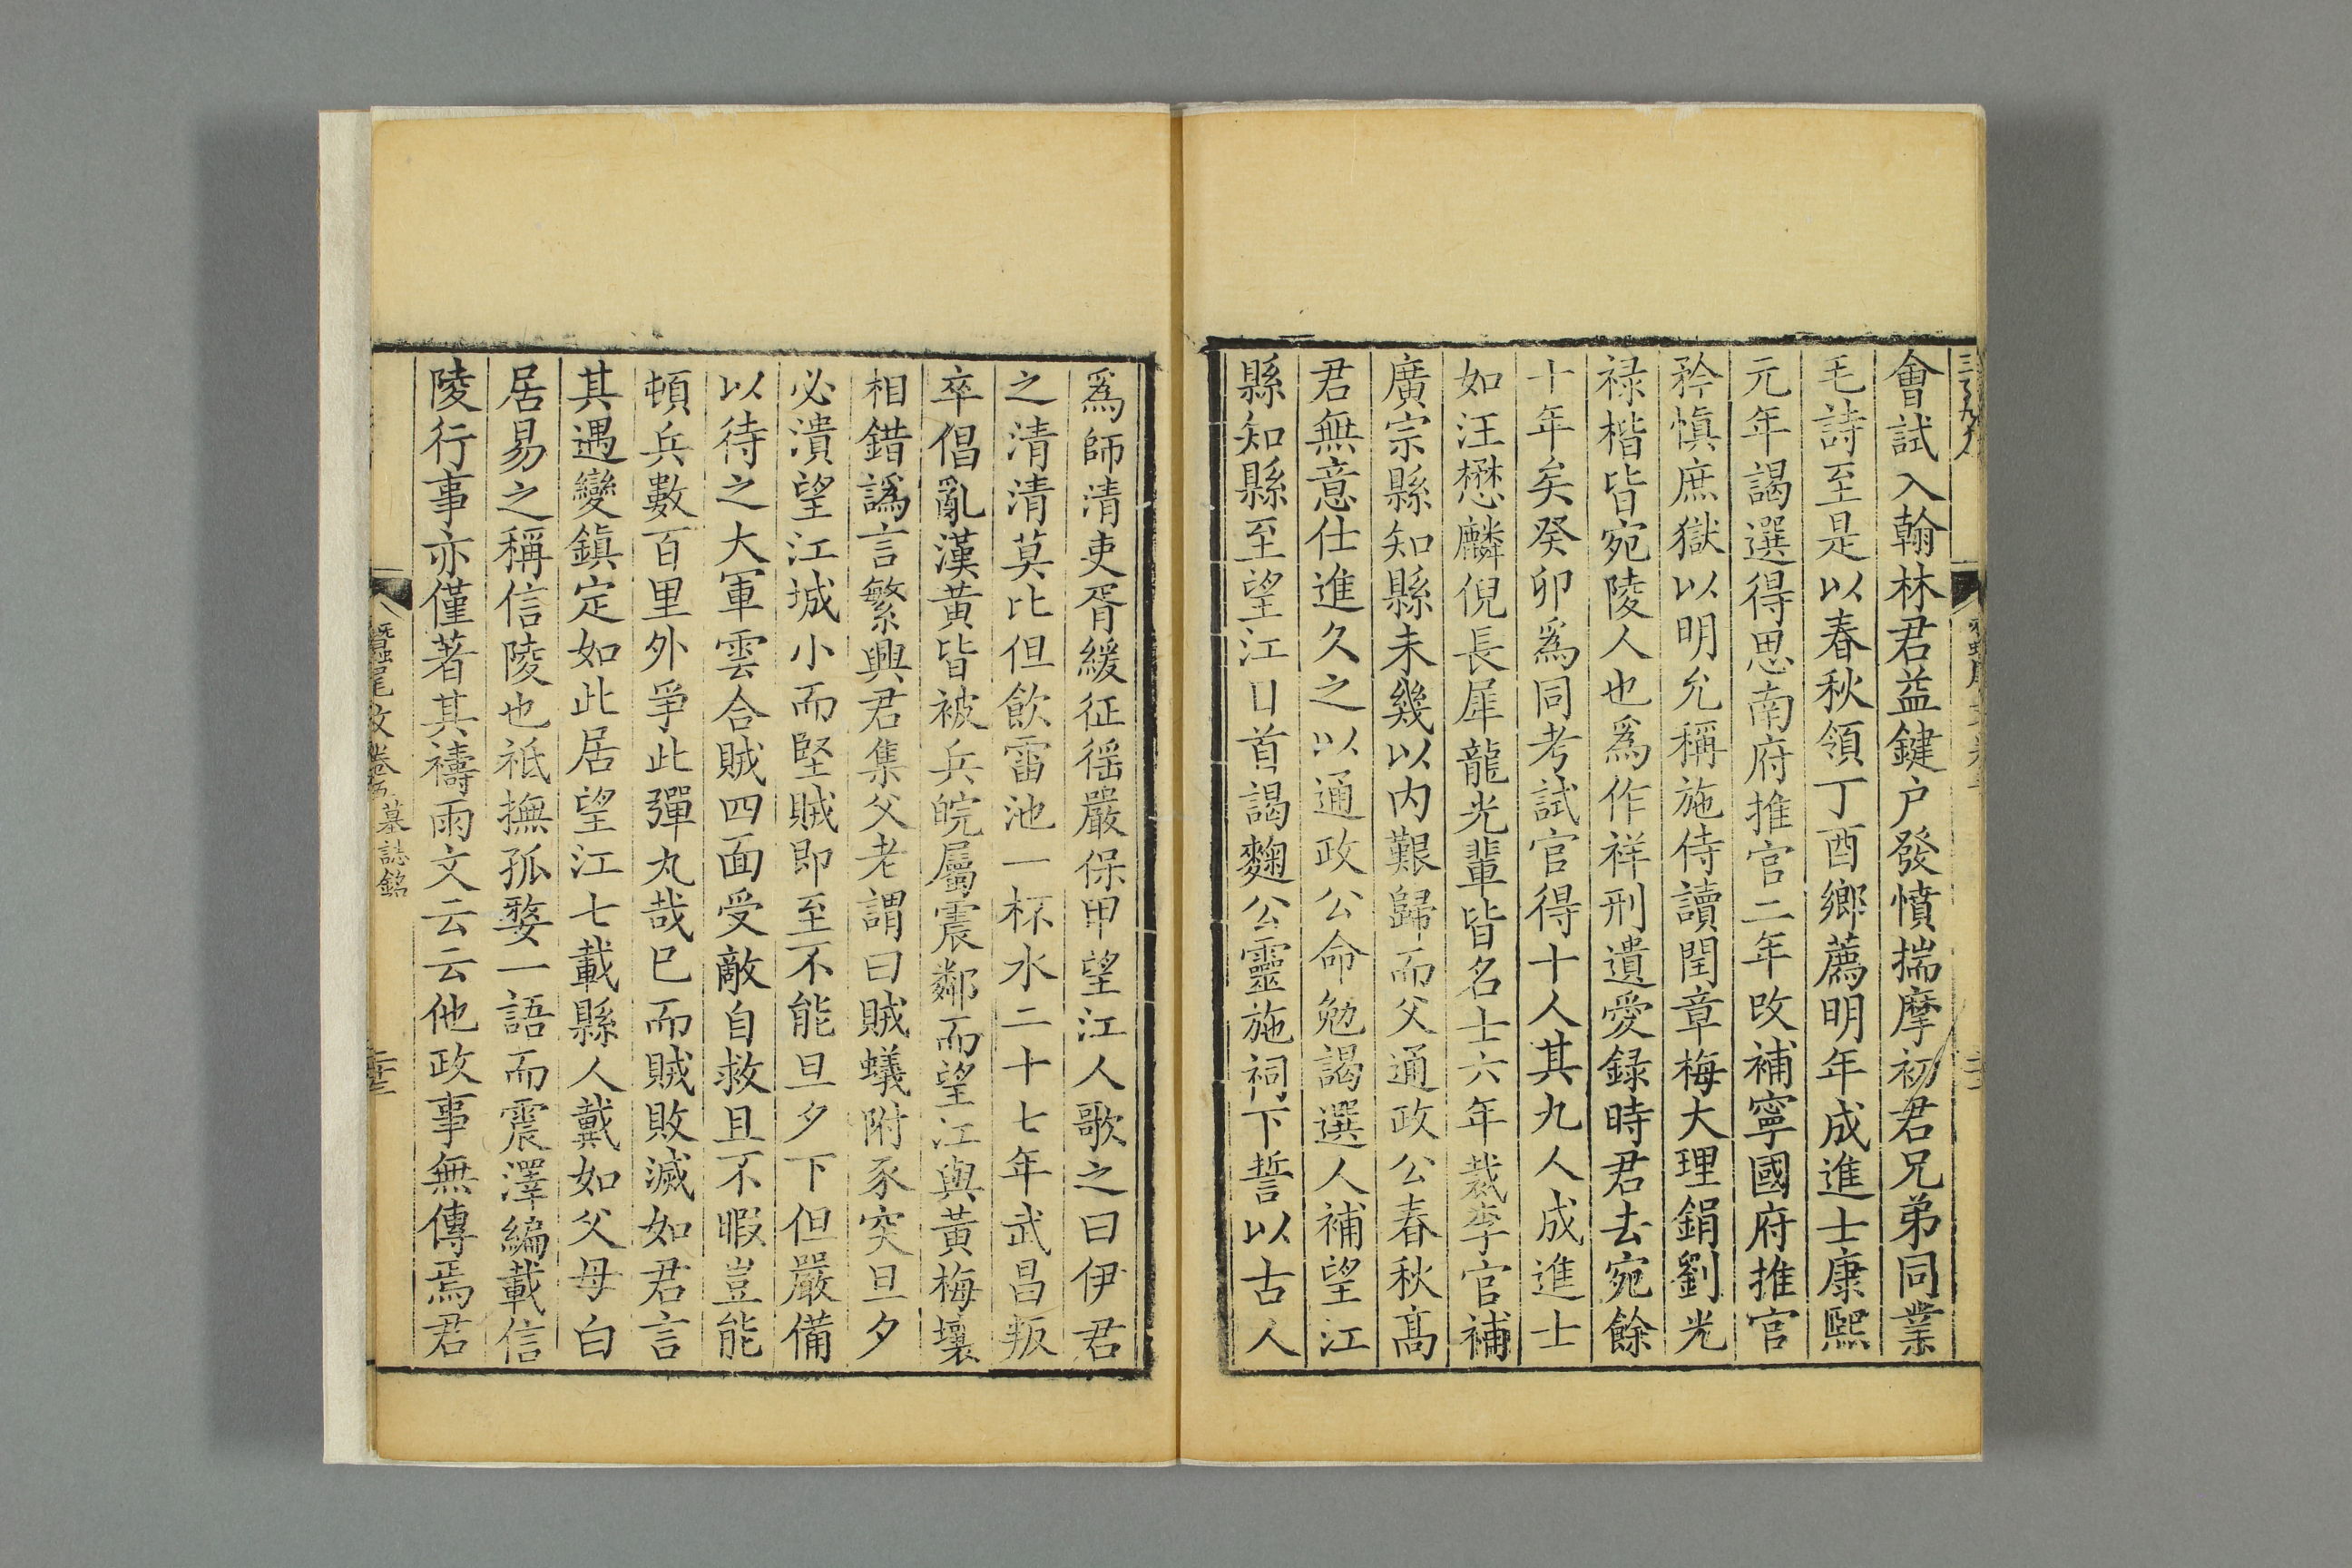 會試入翰林君益鍵户發憤揣摩初君兄弟同業
毛詩至是以春秋領丁酉鄉薦明年成進士康熙
元年謁選得思南府推官二年改補寧國府推官
矜愼庶獄以明允稱施侍讀閏章梅大理鋗劉光
禄楷皆宛陵人也爲作祥刑遺愛録時君去宛餘
十年矣癸卯爲同考試官得十人其九人成進士
如汪懋麟倪長犀龍光輩皆名士六年裁李官補
廣宗縣知縣未幾以内艱歸而父通政公春秋髙
君無意仕進久之以通政公命勉謁選人補望江
縣知縣至望江日首謁麴公靈施祠下誓以古人
爲師清吏胥緩征徭嚴保甲望江人歌之曰伊君
之清清莫比但飲雷池一杯水二十七年武昌叛
卒倡亂漢黃皆被兵皖屬震鄰而望江與黃梅壤
相錯譌言繁興君集父老謂曰賊蟻附豕突旦夕
必潰望江城小而堅賊即至不能旦夕下但嚴備
以待之大軍雲合賊四面受敵自救且不暇豈能
頓兵數百里外爭此彈丸哉已而賊敗滅如君言
其遇變鎮定如此居望江七載縣人戴如父母白
居易之稱信陵也祗撫孤婺一語而震澤編載信
陵行事亦僅著其禱雨文云云他政事無傳焉君
蠶尾文卷五 墓誌銘